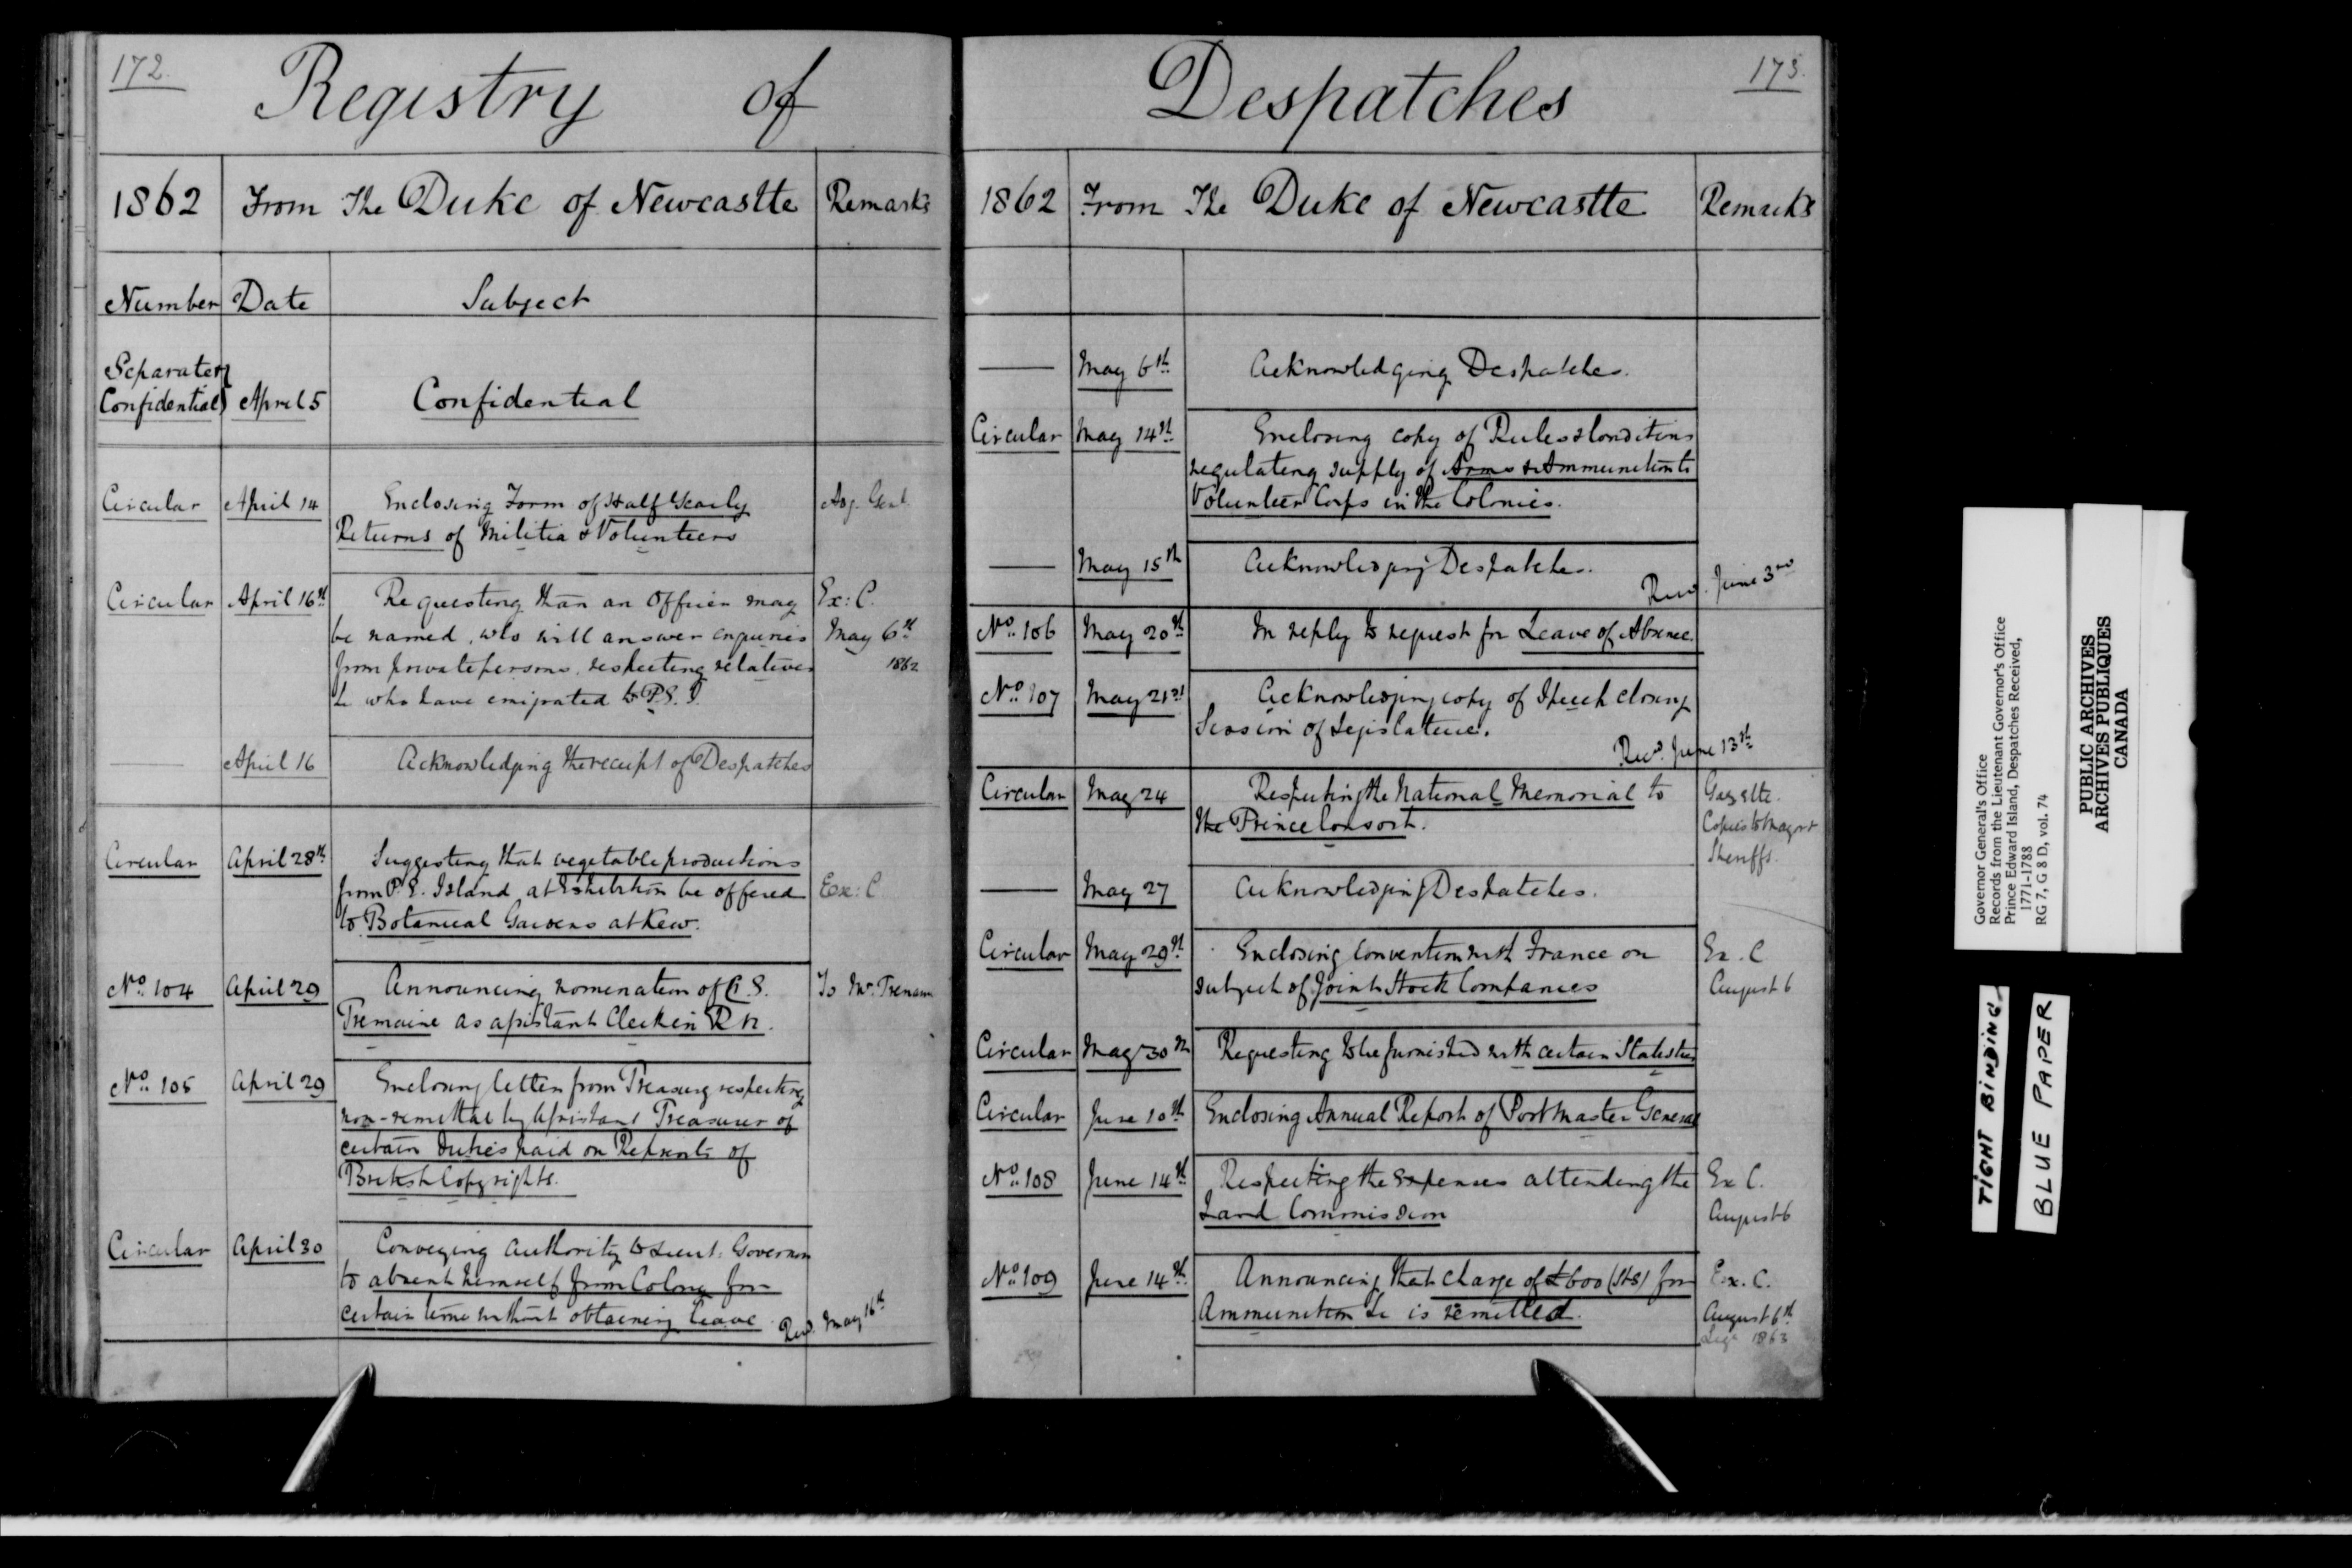 172.
Registry of
1862 From The Duke of Newcastle Remarks
Number Date Subject
Separate &
Confidential April 5 Confidential
Circular April 14 Enclosing Form of Half Yearly Adj. Genl.
Returns of Militia & Volunteers
Circular April 16th Requesting than an Officer may Ex: C.
be named, who will answer enquiries May 6th
from private persons, respecting relatives 1862
&c who have emigrated to P.E.I.
— April 16 Acknowledging the receipt of Despatches
Circular April 28th Suggesting that vegetable productions
from P.E. Island at Exhibition be offered Ex: C
to Botanical Gardens at Kew.
No. 104 April 29 Announcing nomination of S. To Mr.
Tremaine as assistant Clerk in
No. 105 April 29 Enclosing letter from Treasury respecting
non-remittal by Assistant Treasurer of
certain duties paid on Reprints of
British Copyrights.
Circular April 30 Conveying Authority to Lieut: Governor
to absent himself from Colony for
certain time without obtaining leave. Recd. May 16th
173.
Despatches
1862 From The Duke of Newcastle Remarks
— May 6th Acknowledging Despatches.
Circular May 14th Enclosing copy of Rules & Conditions
regulating supply of Arms & Ammunition to
Volunteer Corps in the Colonies.
— May 15th Acknowledging Despatches.
Recd. June 3rd
No. 106 May 20th In reply to request for Leave of Absence.
No. 107 May 21st Acknowledging copy of Speech closing
Session of Legislature.
Recd. June 13th
Circular May 24 Respecting the National Memorial to Gazette.
the Prince Consort. Copies to Mayor &
Sheriffs.
— May 27 Acknowledging Despatches.
Circular May 29th Enclosing Convention with France on Ex. C
subject of Joint Stock Companies August 6
Circular May 30th Requesting to be furnished with certain Statistics
Circular June 10th Enclosing Annual Report of Post Master General
No. 108 June 14th Respecting the Expenses attending the Ex C.
Land Commission August 6
No. 109 June 14th Announcing that charge of £600 (Stg) for Ex. C.
Ammunition &c is remitted. August 6th
1863
Governor General's Office
Records from the Lieutenant Governor's Office
Prince Edward Island, Despatches Received,
1771-1788
RG 7, G 8 D, vol. 74
PUBLIC ARCHIVES
ARCHIVES PUBLIQUES
CANADA
TIGHT BINDING
BLUE PAPER